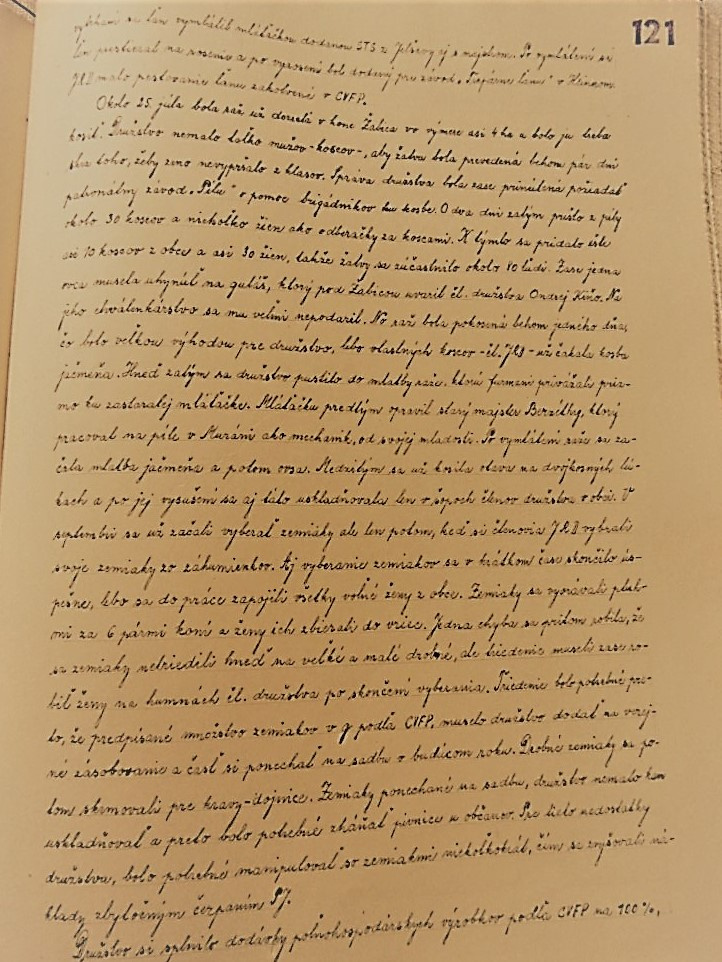 121
vyschaní sa ľan vymlátil mláťačkou dodanou STS z Jelšavy aj s majstrom. Po vymlátení sa
ľan prestieral na rosenie a po vyrosení bol dodaný pre závod „Trepárne ľanu" v
JRD malo pestovanie ľanu zakotvené v CVFP.
Okolo 25. júla bola raž už dozretá v hone Žabica vo výmere asi 4 ha a bolo ju treba
kosiť. Družstvo nemalo toľko mužov-koscov-, aby žatva bola prevedená behom pár dní
dľa toho, žeby zrno nevypŕšalo z klasov. Správa družstva bola zase prinútená požiadať
patronátny závod „Pílu" o pomoc brigádnikov ku kosbe. O dva dni zatým prišlo z píly
okolo 30 koscov a niekoľko žien ako odberačky za koscami. K týmto sa pridalo ešte
asi 10 koscov z obce a asi 30 žien, takže žatvy sa zúčastnilo okolo 80 ľudí. Zase jedna
ovca musela uhynúť na guláš, ktorý pod Žabicou uvaril čl. družstva Ondrej Na
jeho chválenkárstvo sa mu veľmi nepodaril. No raž bola pokosená behom jedného dňa,
čo bolo veľkou výhodou pre družstvo, lebo vlastných koscov-čl. JRD- už čakala kosba
jačmeňa. Hneď zatým sa družstvo pustilo do mlatby raže, ktorú furmani privážali pria-
mo ku zastaralej mláťačke. Mláťačku predtým opravil starý majster Berzéthy, ktorý
pracoval na píle v Muráni ako mechanik, od svojej mladosti. Po vymlátení raže sa za-
čala mlatba jačmeňa a potom ovsa. Medzitým sa už kosila otava na dvojkosných lú-
kach a po jej vysušení sa aj táto uskladňovala len v šopoch členov družstva v obci. V
septembri sa už začali vyberať zemiaky ale len potom, keď si členovia JRD vybrali
svoje zemiaky zo záhumienkov. Aj vyberanie zemiakov sa v krátkom čase skončilo ús-
pešne, lebo sa do práce zapojili všetky voľné ženy z obce. Zemiaky sa vyorávali pluh-
mi za 6 pármi koní a ženy ich zbierali do vriec. Jedna chyba sa pritom robila, že
sa zemiaky netriedili hneď na veľké a malé drobné, ale triedenie museli zase ro-
biť ženy na humnách čl. družstva po skončení vyberania. Triedenie bolo potrebné pre-
to, že predpísané množstvo zemiakov v q podľa CVFP. muselo družstvo dodať na verej-
né zásobovanie a časť si ponechať na sadbu v budúcom roku. Drobné zemiaky sa po-
tom skrmovali pre kravy-dojnice. Zemiaky ponechané na sadbu, družstvo nemalo kam
uskladňovať a preto bolo potrebné zháňať pivnice u občanov. Pre tieto nedostatky
družstva, bolo potrebné manipulovať so zemiakmi niekoľkokrát, čím sa zvyšovali ná-
klady zbytočným čerpaním PJ.
Družstvo si splnilo dodávky poľnohospodárskych výrobkov podľa CVFP na 100%,